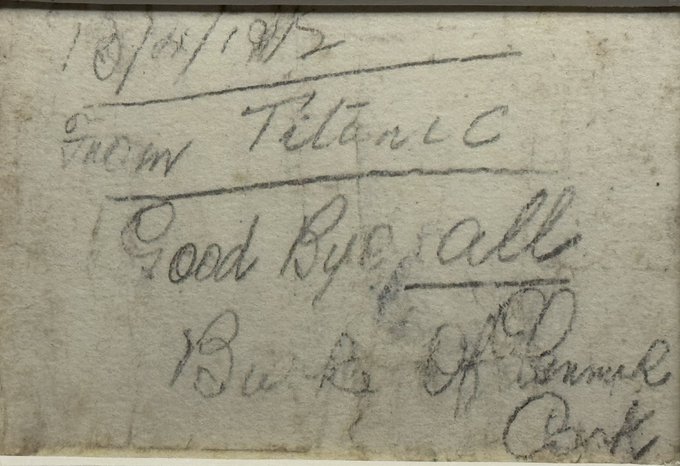 13/4/1912
From Titanic
Good Bye all
Burke Of Glanmire
Cork